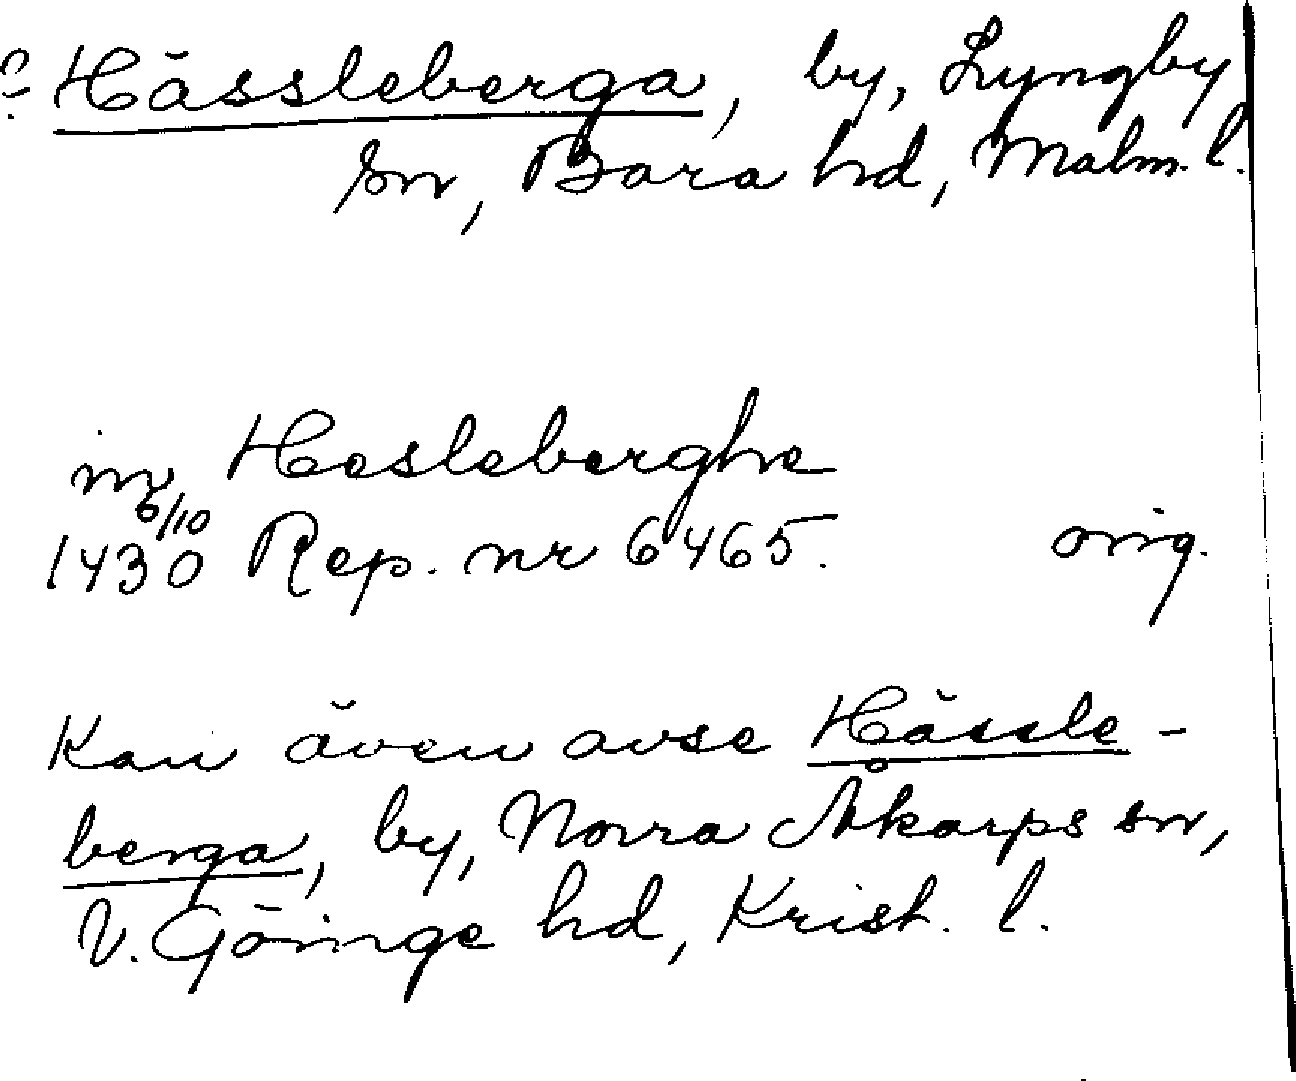 ? Hässleberga, by, Lyngby
sn, Bara hd, Malm. l.
in Hesleberghe
6/10
1430 Rep. nr 6465. orig.
Kan även avse Hässle-
berga, by, Norra Åkarps sn,
V. Göinge hd, Krist. l.